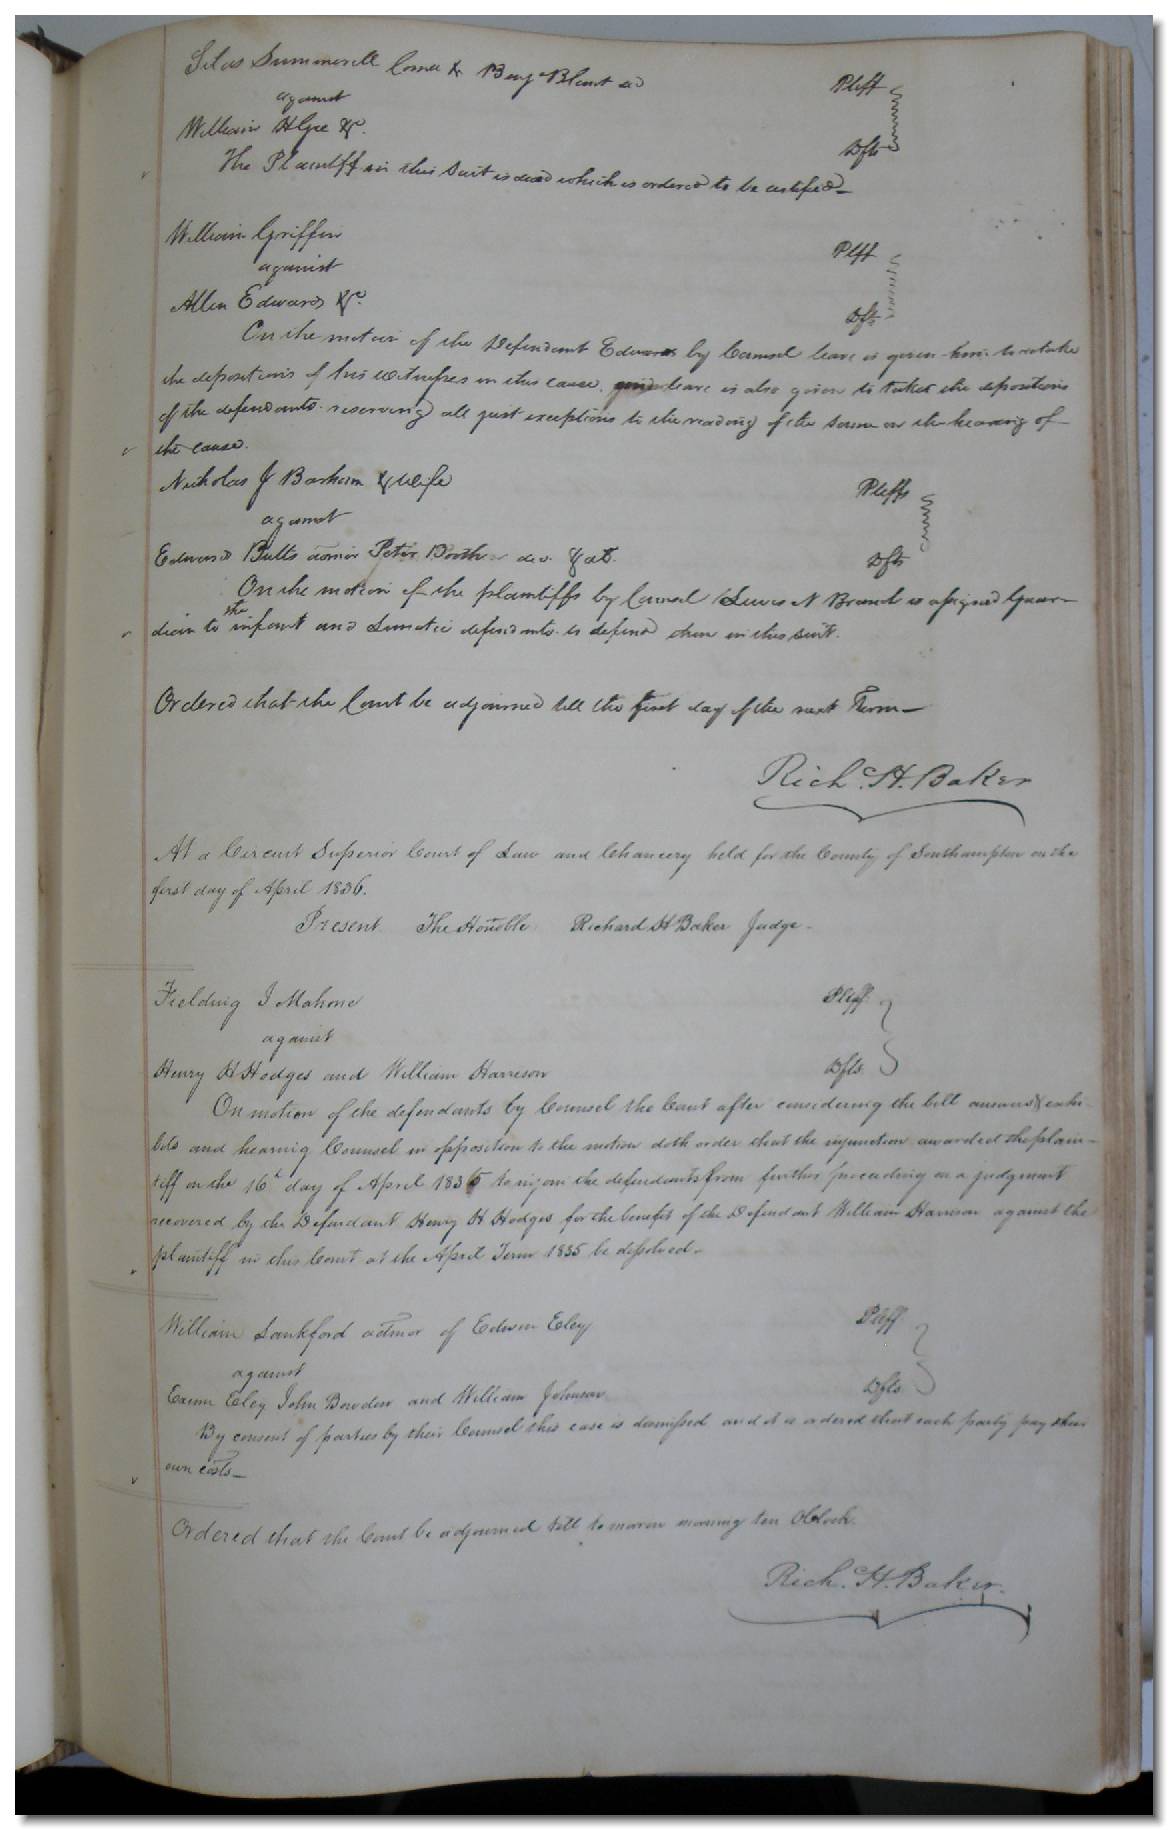 Silas Summerell Comee &c Benj Blunt decd Pleff
against
William H Gee &c. Dfts
The Plaintiff in this Suit is dead which is ordered to be certified—
William Griffin Pleff
against
Allen Edwards &c. Dfts
On the motion of the Defendant Edwards by Counsel leave is given him to retake
the depositions of his witnesses in this cause. leave is also given to take the depositions
of the defendants reserving all just exceptions to the reading of the same on the hearing of
the cause.
Nicholas J Barham & wife Pleffs
against
Edward Butts admor Peter Booth decd. & als. Dfts
On the motion of the plaintiffs by Counsel Lewis N Brand is assigned Guar-
dian to the infant and Lunatic defendants to defend them in this suit.
Ordered that the Court be adjourned till the first day of the next Term—
Rich. H. Baker
At a Circuit Superior Court of Law and Chancery held for the County of Southampton on the
first day of April 1836.
Present The Honoble Richard H Baker Judge.
Fielding J Mahone Pleff.
against
Henry H Hodges and William Harrison Dfts.
On motion of the defendants by Counsel the Court after considering the bill answers & exhi-
bits and hearing Counsel in opposition to the motion doth order that the injunction awarded the plain-
tiff on the 16th day of April 1835 to injoin the defendants from further proceeding on a judgment
recovered by the Defendant Henry H Hodges for the benefit of the Defendant William Harrison against the
plaintiff in this Court at the April Term 1835 be dissolved—
William Lankford admor of Edwin Eley Pleff
against
Exum Eley John Bowden and William Johnson Dfts
By consent of parties by their Counsel this case is dismissed and it is ordered that each party pay their
own costs—
Ordered that the Court be adjourned till tomorrow morning ten OClock.
Rich. H. Baker.